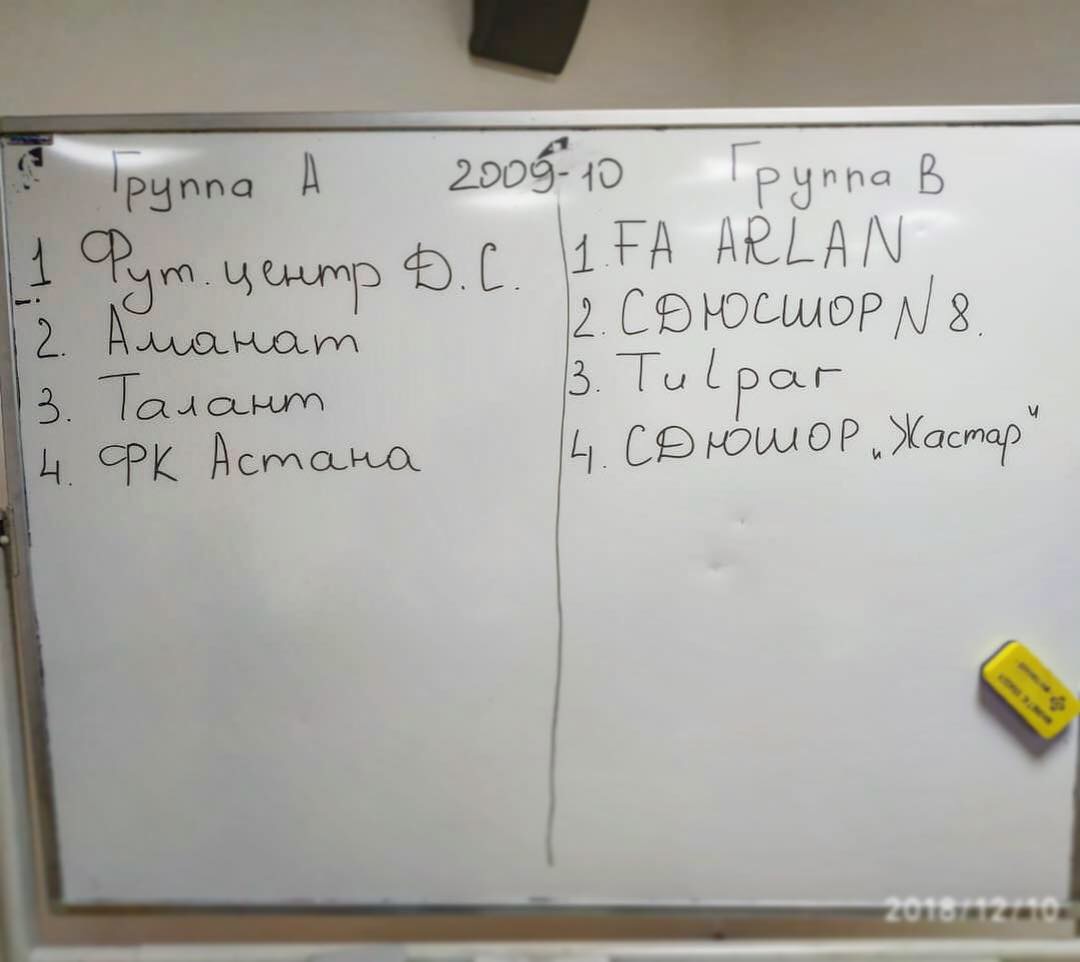 2009-10
Группа А
1. Фут. центр Д.С.
2. Аманат
3. Талант
4. ФК Астана
Группа В
1. FA ARLAN
2. СДЮСШОР N 8.
3. Tulpar
4. СДЮШОР „Жастар"
2018/12/10